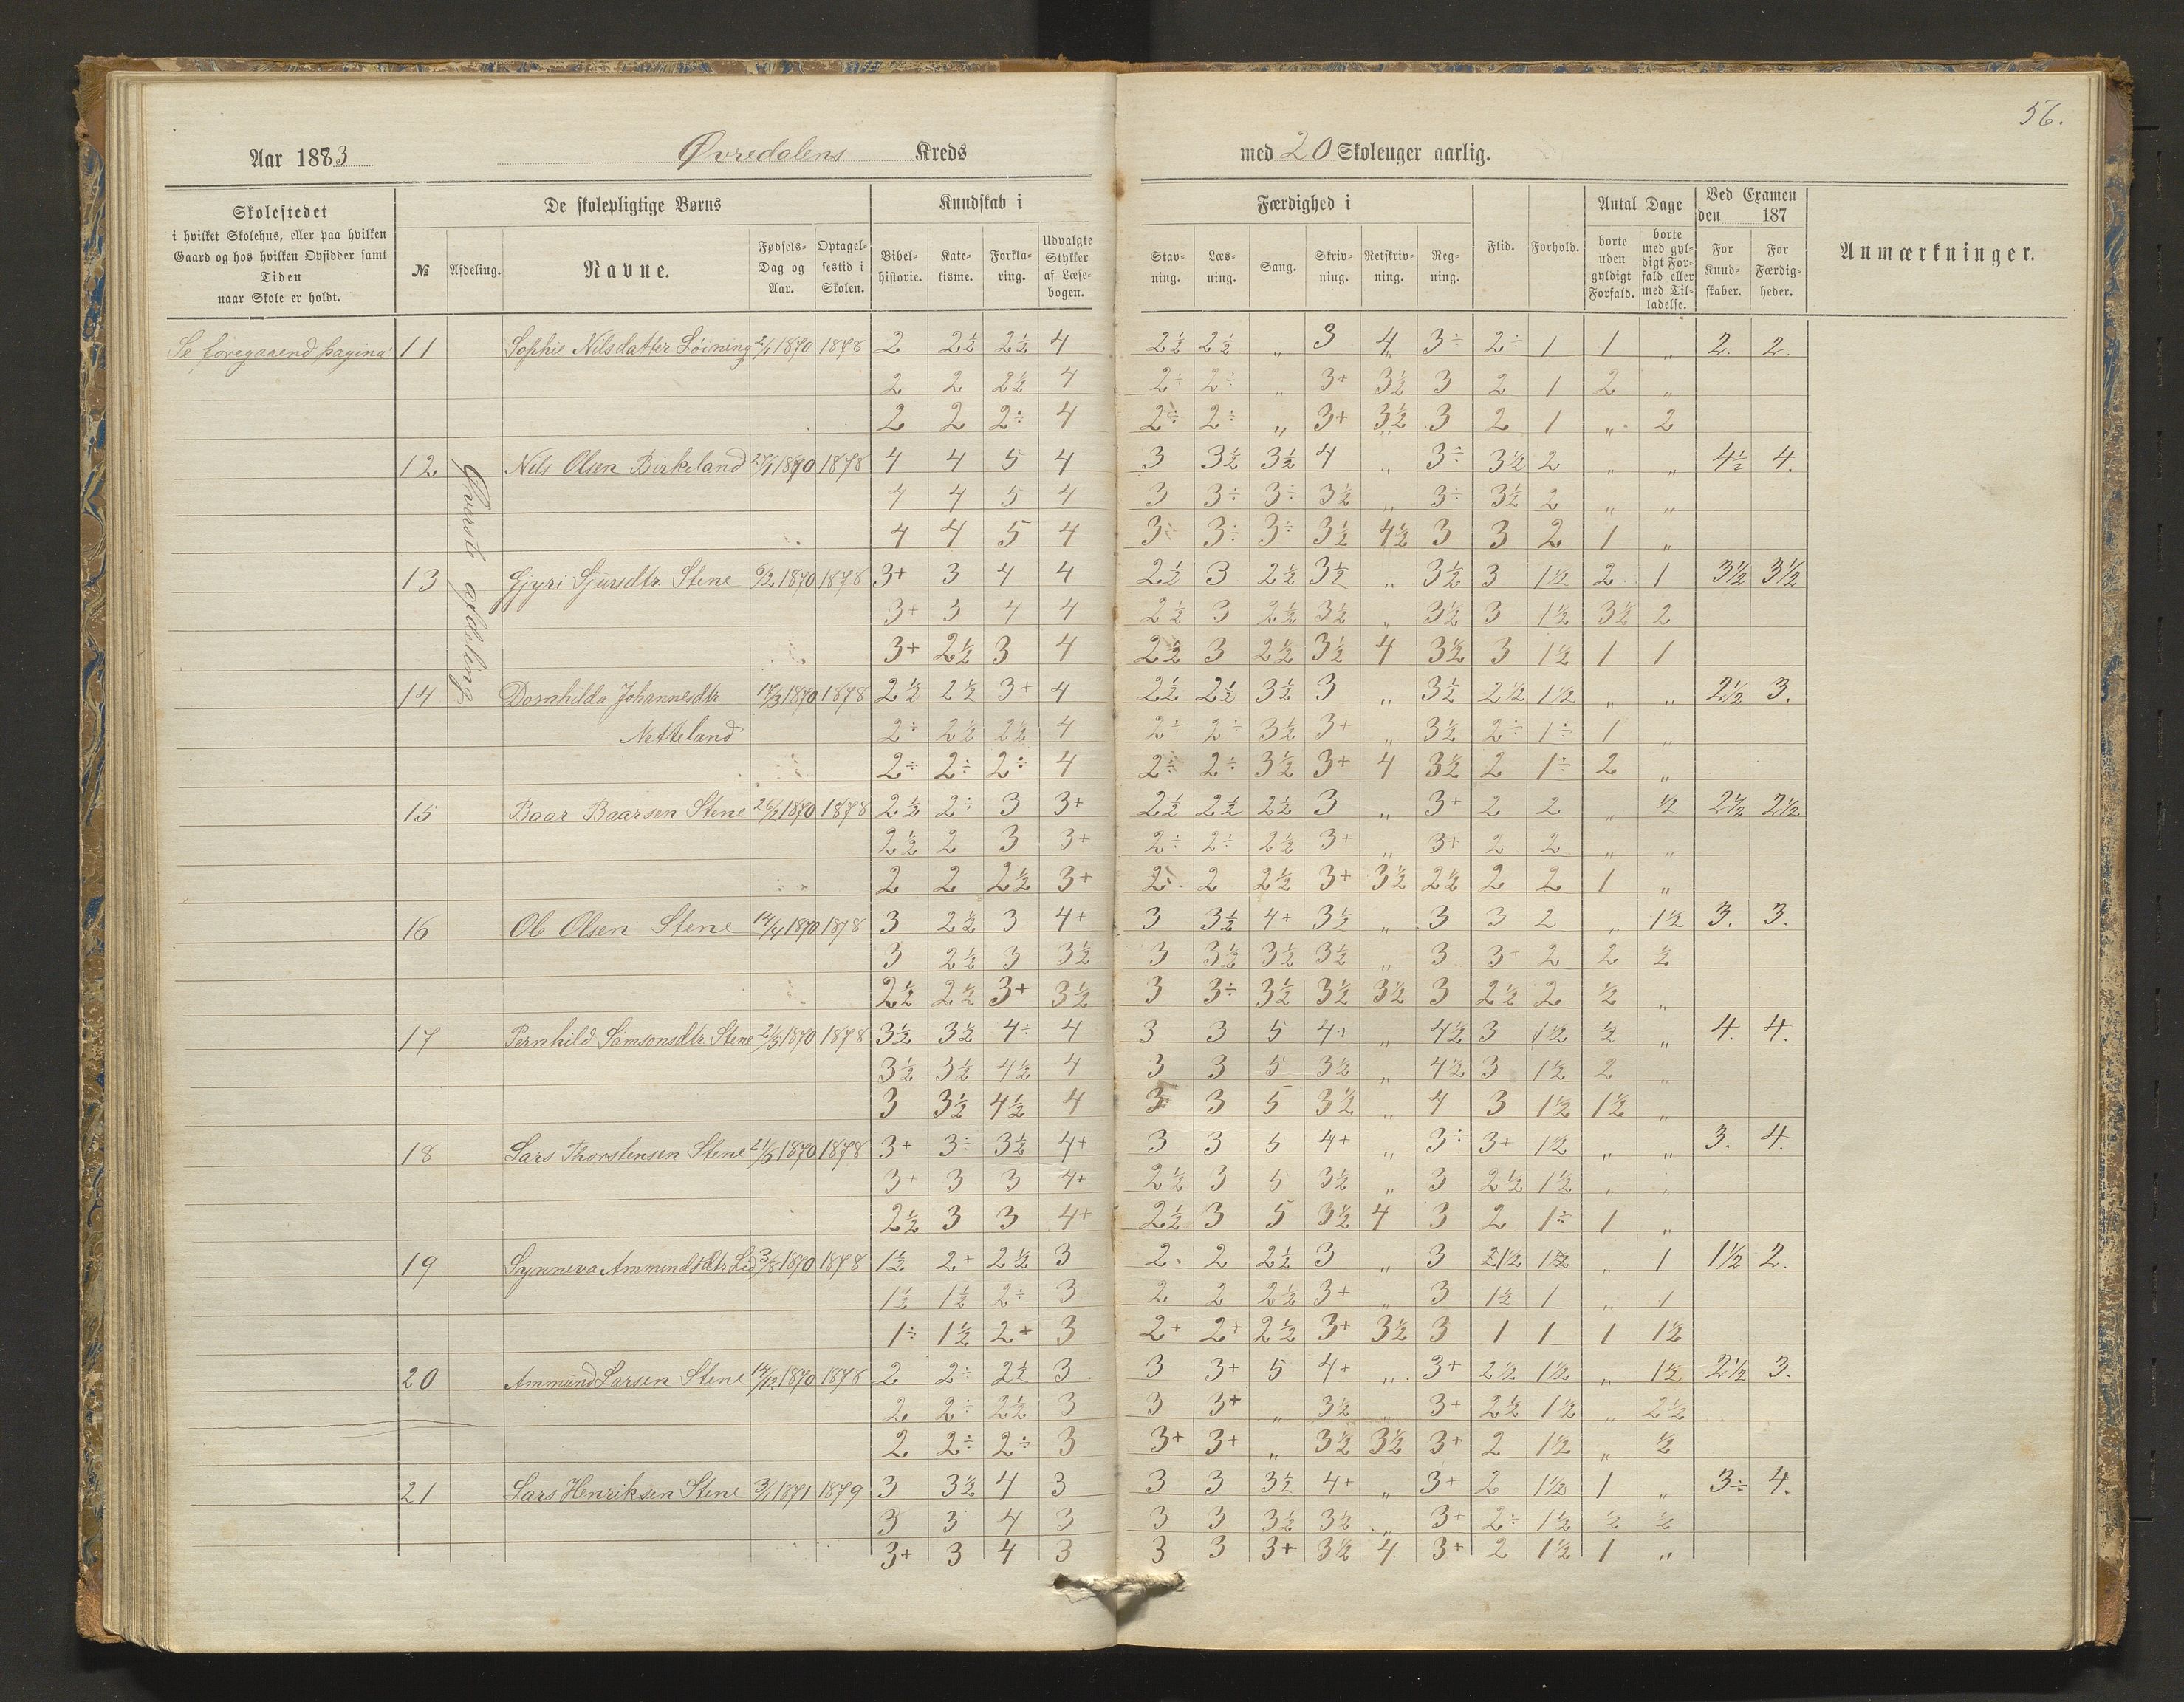 56.
Aar 1883 Øvredalens Kreds med 20 Skoleuger aarlig.
Skolestedet i hvilket Skolehus, eller paa hvilken Gaard og hos hvilken Opsidder samt Tiden naar Skole er holdt.
De skolepligtige Børns
№ Afdeling. Navne. Fødsels-Dag og Aar. Optagelsestid i Skolen.
Kundskab i
Bibelhistorie. Katekisme. Forklaring. Udvalgte Stykker af Læsebogen.
Færdighed i
Stavning. Læsning. Sang. Skrivning. Retskrivning. Regning.
Flid. Forhold.
Antal Dage
borte uden gyldigt Forfald. borte med gyldigt Forfald eller med Tilladelse.
Ved Examen den 187
For Kundskaber. For Færdigheder.
Anmærkninger.
Se foregaaend pagina
Øverste afdeling
11 Sophie Nilsdatter Løining 2/1 1870 1878 2 2½ 2½ 4 2½ 2½ „ 3 4 3÷ 2÷ 1 1 „ 2. 2.
2 2 2½ 4 2÷ 2÷ „ 3+ 3½ 3 2 1 2 „
2 2 2÷ 4 2÷ 2÷ „ 3+ 3½ 3 2 1 „ 2
12 Nils Olsen Birkeland 27/1 1870 1878 4 4 5 4 3 3½ 3½ 4 „ 3÷ 3½ 2 „ „ 4½ 4.
4 4 5 4 3 3÷ 3÷ 3½ „ 3÷ 3½ 2 „ „
4 4 5 4 3 3÷ 3÷ 3½ 4½ 3 3 2 1 „
13 Gyri Sjursdtr. Stene 6/2 1870 1878 3+ 3 4 4 2½ 3 2½ 3½ „ 3½ 3 1½ 2 1 3½ 3½
3+ 3 4 4 2½ 3 2½ 3½ „ 3½ 3 1½ 3½ 2
3+ 2½ 3 4 2½ 3 2½ 3½ 4 3½ 3 1½ 1 1
14 Dornhilda Johannesdtr. 17/3 1870 1878 2½ 2½ 3+ 4 2½ 2½ 3½ 3 „ 3½ 2½ 1½ „ „ 2½ 3.
Netteland 2÷ 2½ 2½ 4 2÷ 2÷ 3½ 3+ „ 3½ 2÷ 1÷ 1 „
2÷ 2÷ 2÷ 4 2÷ 2÷ 3½ 3+ 4 3½ 2 1÷ 2 „
15 Baar Baarsen Stene 26/2 1870 1878 2½ 2÷ 3 3+ 2½ 2½ 2½ 3 „ 3+ 2 2 „ ½ 2½ 2½
2½ 2 3 3+ 2÷ 2÷ 2½ 3+ „ 3+ 2 2 „ „
2 2 2½ 3+ 2 2 2½ 3+ 3½ 2½ 2 2 1 „
16 Ole Olsen Stene 14/4 1870 1878 3 2½ 3 4+ 3 3½ 4+ 3½ „ 3 3 2 „ 1½ 3. 3.
3 2½ 3 3½ 3 3½ 3½ 3½ „ 3 3+ 2 2 ½
2½ 2½ 3+ 3½ 3 3÷ 3½ 3½ 3½ 3 2½ 2 ½ „
17 Pernhild Samsonsdtr. Stene 2/5 1870 1878 3½ 3½ 4÷ 4 3 3 5 4+ „ 4½ 3 1½ ½ „ 4. 4.
3½ 3½ 4½ 4 3 3 5 3½ „ 4½ 3 1½ 2 „
3 3½ 4½ 4 3 3 5 3½ „ 4 3 1½ 1½ „
18 Lars Thorstensen Stene 21/5 1870 1878 3+ 3÷ 3½ 4+ 3 3 5 4+ „ 3÷ 3+ 1½ „ „ 3. 4.
3+ 3 3 4+ 2½ 3 5 3½ „ 3 2½ 1½ „ „
2½ 3 3 4+ 2½ 3 5 3½ 4 3 2 1÷ 1 „
19 Synneva Ammundsdtr. Lid 3/8 1870 1878 1½ 2+ 2½ 3 2 2 2½ 3 „ 3 1½ 1½ „ 1 1½ 2.
1½ 1½ 2÷ 3 2 2 2½ 3+ „ 3 1½ 1 „ 1
1÷ 1½ 2+ 3 2+ 2+ 2½ 3+ 3½ 3 1 1 1 1½
20 Ammund Larsen Stene 14/12 1870 1878 2 2÷ 2½ 3 3 3+ 5 4+ „ 3+ 2½ 1½ „ 1½ 2½ 3.
2 2÷ 2½ 3 3 3+ „ 3½ „ 3+ 2½ 1½ „ 2½
2 2÷ 2÷ 3 3+ 3+ „ 3½ 3½ 3+ 2 1½ „ ½
21 Lars Henriksen Stene 3/1 1871 1879 3 3½ 4 3 3 3 3½ 4+ „ 3+ 2 1½ 1 „ 3÷ 4.
3 3 4 3 3 3 3½ 3½ „ 3+ 2÷ 1½ ½ ½
3+ 3 4 3 3 3 3+ 3½ 4 3+ 2 1½ 1 „